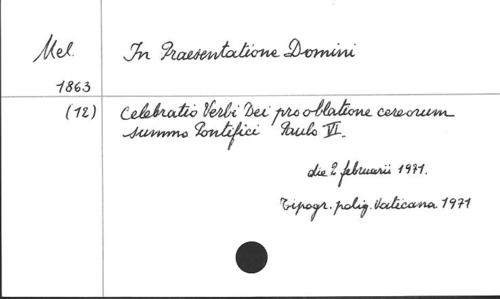 Mel. In Praesentatione Domini
1863
(12) Celebratio Verbi Dei pro oblatione cereorum
summo Pontifici Paulo VI.
die 2 februarii 1971.
Tipogr. polig. Vaticana 1971